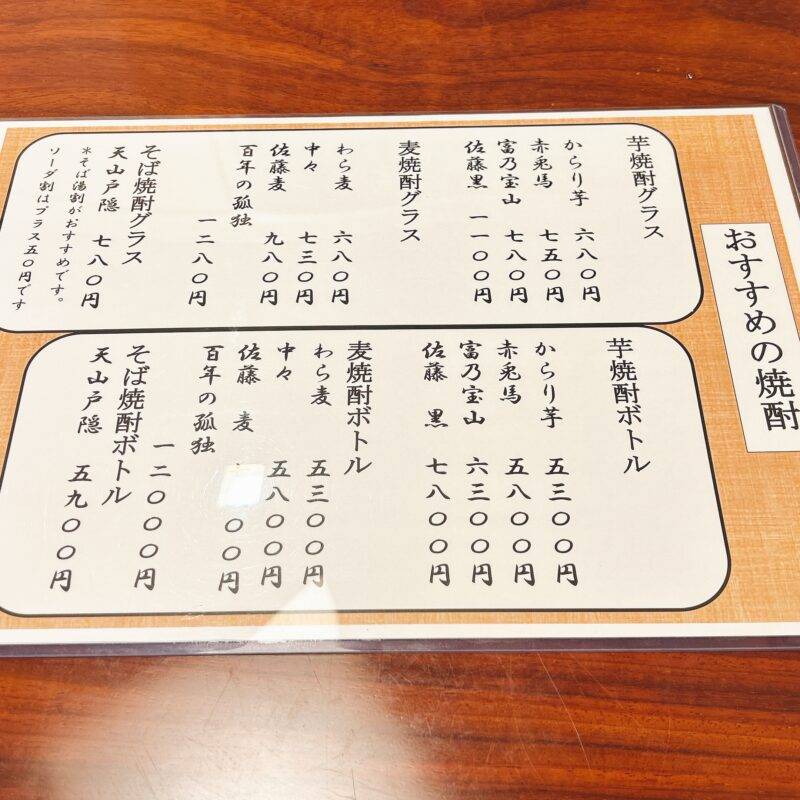 おすすめの焼酎
芋焼酎グラス
からり芋 六八〇円
赤兎馬 七五〇円
富乃宝山 七八〇円
佐藤黒 一一〇〇円
麦焼酎グラス
わら麦 六八〇円
中々 七三〇円
佐藤麦 九八〇円
百年の孤独
一二八〇円
そば焼酎グラス
天山戸隠 七八〇円
＊そば湯割がおすすめです。
ソーダ割はプラス五〇円です
芋焼酎ボトル
からり芋 五三〇〇円
赤兎馬 五八〇〇円
富乃宝山 六三〇〇円
佐藤 黒 七八〇〇円
麦焼酎ボトル
わら麦 五三〇〇円
中々 五八〇〇円
佐藤 麦 〇〇円
百年の孤独
一二〇〇〇円
そば焼酎ボトル
天山戸隠 五九〇〇円